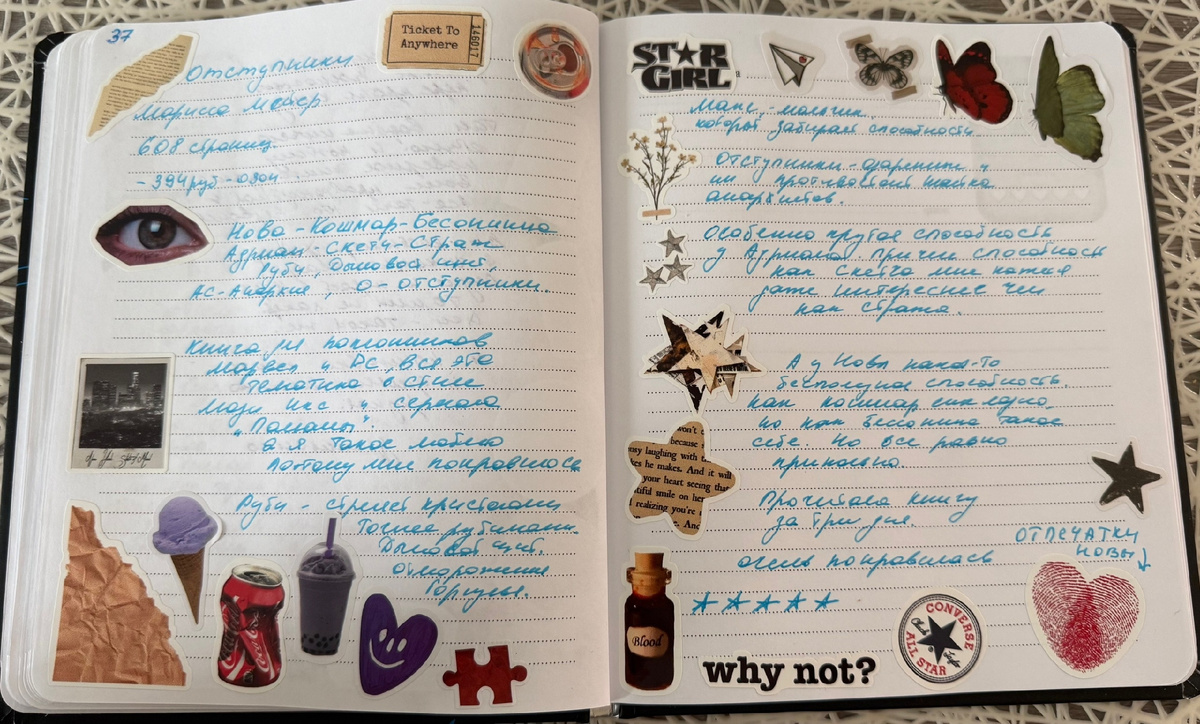 37
Ticket To
Anywhere
146017
Отступники
Марисса Мейер
608 страниц
-394руб-озон
Нова-Кошмар-Бесонница
Адриан-Скетч-Страж
Руби, Дымовой щит,
Ас-Анархия, О-отступники.
Книга для поклонников
Марвел и DC, вся эта
тематика в стиле
Люди икс и сериала
"Пацаны"
а я такое люблю
Потому мне понравилось
Руби - стреляет кристалами
Точнее рубинами.
Дымовой щит.
отморожение
Горгулья.
STAR
GIRL
Макс,-мальчик
который забирает способности
Отступники-одаренные и
им противостоит шайка
анархистов.
Особенно крутая способность
у Адриана. Причем способность
как Скетча мне кажется
даже интереснее чем
как стража.
А у Новы какая-то
бесполезная способность.
как кошмар еще ладно,
но как Бесонница такое
себе. Но все равно
прикольно.
won't
because
laughing with
kes he makes. And it will
your heart seeing that
tiful smile on her
realizing you're
And
Прочитала книгу
за три дня.
очень понравилась
ОТПЕЧАТКИ
НОВЫ
Blood
why not?
CONVERSE
ALL STAR